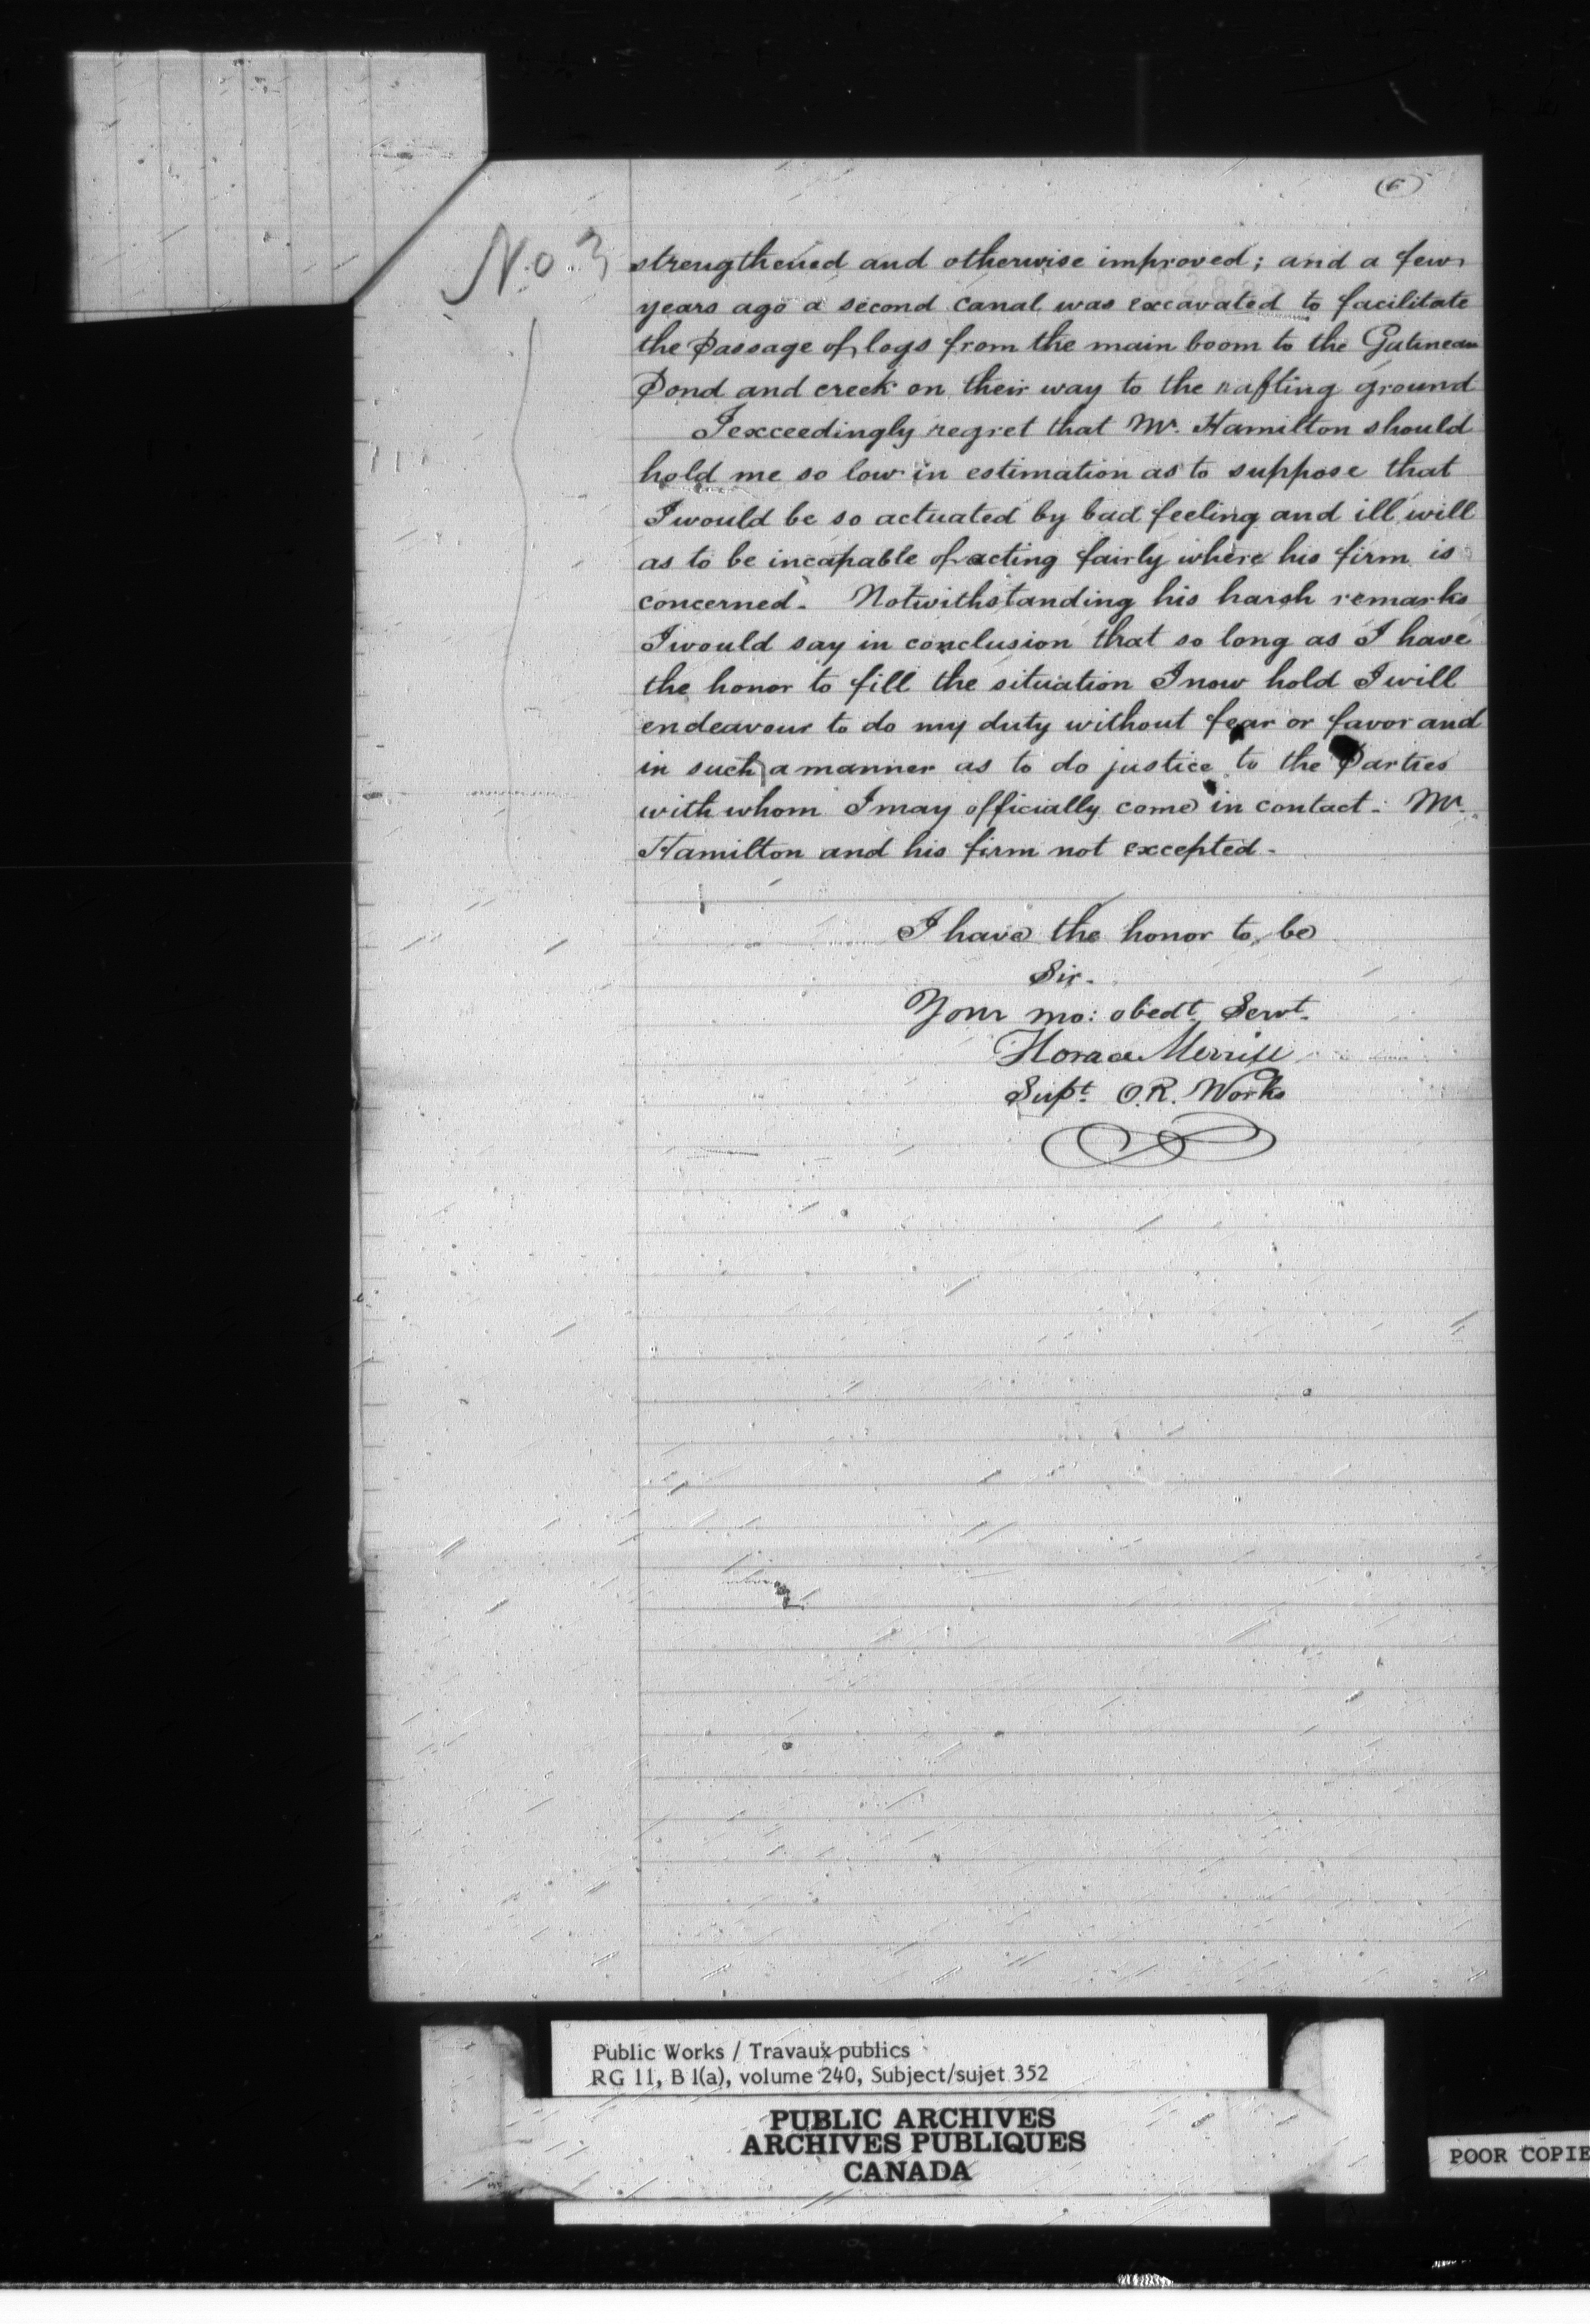 (6)
No. 3
strengthened and otherwise improved; and a few
years ago a second canal was excavated to facilitate
the Passage of logs from the main boom to the Gatineau
Pond and creek on their way to the rafting ground
I exceedingly regret that Mr. Hamilton should
hold me so low in estimation as to suppose that
I would be so actuated by bad feeling and ill will
as to be incapable of acting fairly where his firm is
concerned. Notwithstanding his harsh remarks
I would say in conclusion that so long as I have
the honor to fill the situation I now hold I will
endeavour to do my duty without fear or favor and
in such a manner as to do justice to the Parties
with whom I may officially come in contact. Mr.
Hamilton and his firm not excepted.
I have the honor to be
Sir.
Your mo: obedt. Servt.
Horace Merrill
Supt. O.R. Works
Public Works / Travaux publics
RG 11, B 1(a), volume 240, Subject/sujet 352
PUBLIC ARCHIVES
ARCHIVES PUBLIQUES
CANADA
POOR COPIE